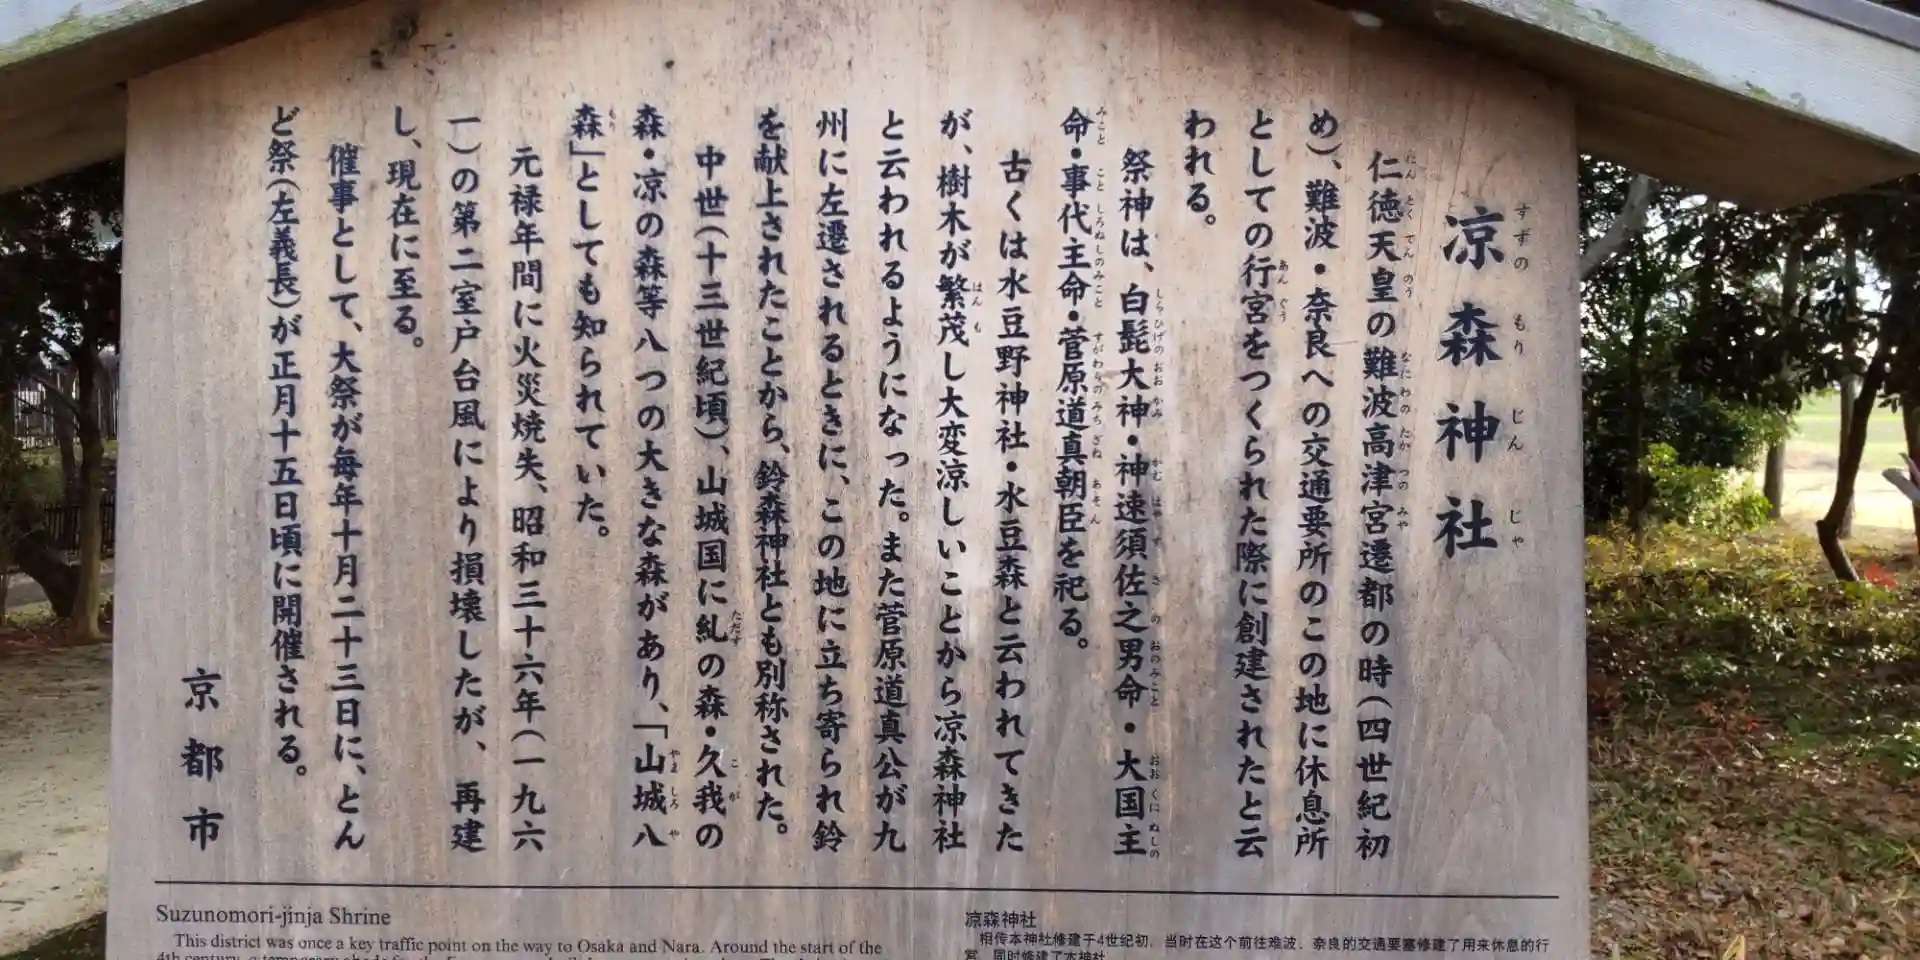 涼森神社
仁徳天皇の難波高津宮遷都の時(四世紀初
め)、難波・奈良への交通要所のこの地に休息所
としての行宮をつくられた際に創建されたと云
われる。
祭神は、白髭大神・神速須佐之男命・大国主
命・事代主命・菅原道真朝臣を祀る。
古くは水豆野神社・水豆森と云われてきた
が、樹木が繁茂し大変涼しいことから涼森神社
と云われるようになった。また菅原道真公が九
州に左遷されるときに、この地に立ち寄られ鈴
を献上されたことから、鈴森神社とも別称された。
中世(十三世紀頃)、山城国に糺の森・久我の
森・涼の森等八つの大きな森があり、「山城八
森」としても知られていた。
元禄年間に火災焼失、昭和三十六年(一九六
一)の第二室戸台風により損壊したが、再建
し、現在に至る。
催事として、大祭が毎年十月二十三日に、とん
ど祭(左義長)が正月十五日頃に開催される。
京都市
Suzunomori-jinja Shrine
This district was once a key traffic point on the way to Osaka and Nara. Around the start of the
凉森神社
相传本神社修建于4世纪初,当时在这个前往难波、奈良的交通要塞修建了用来休息的行
宫,同时修建了本神社